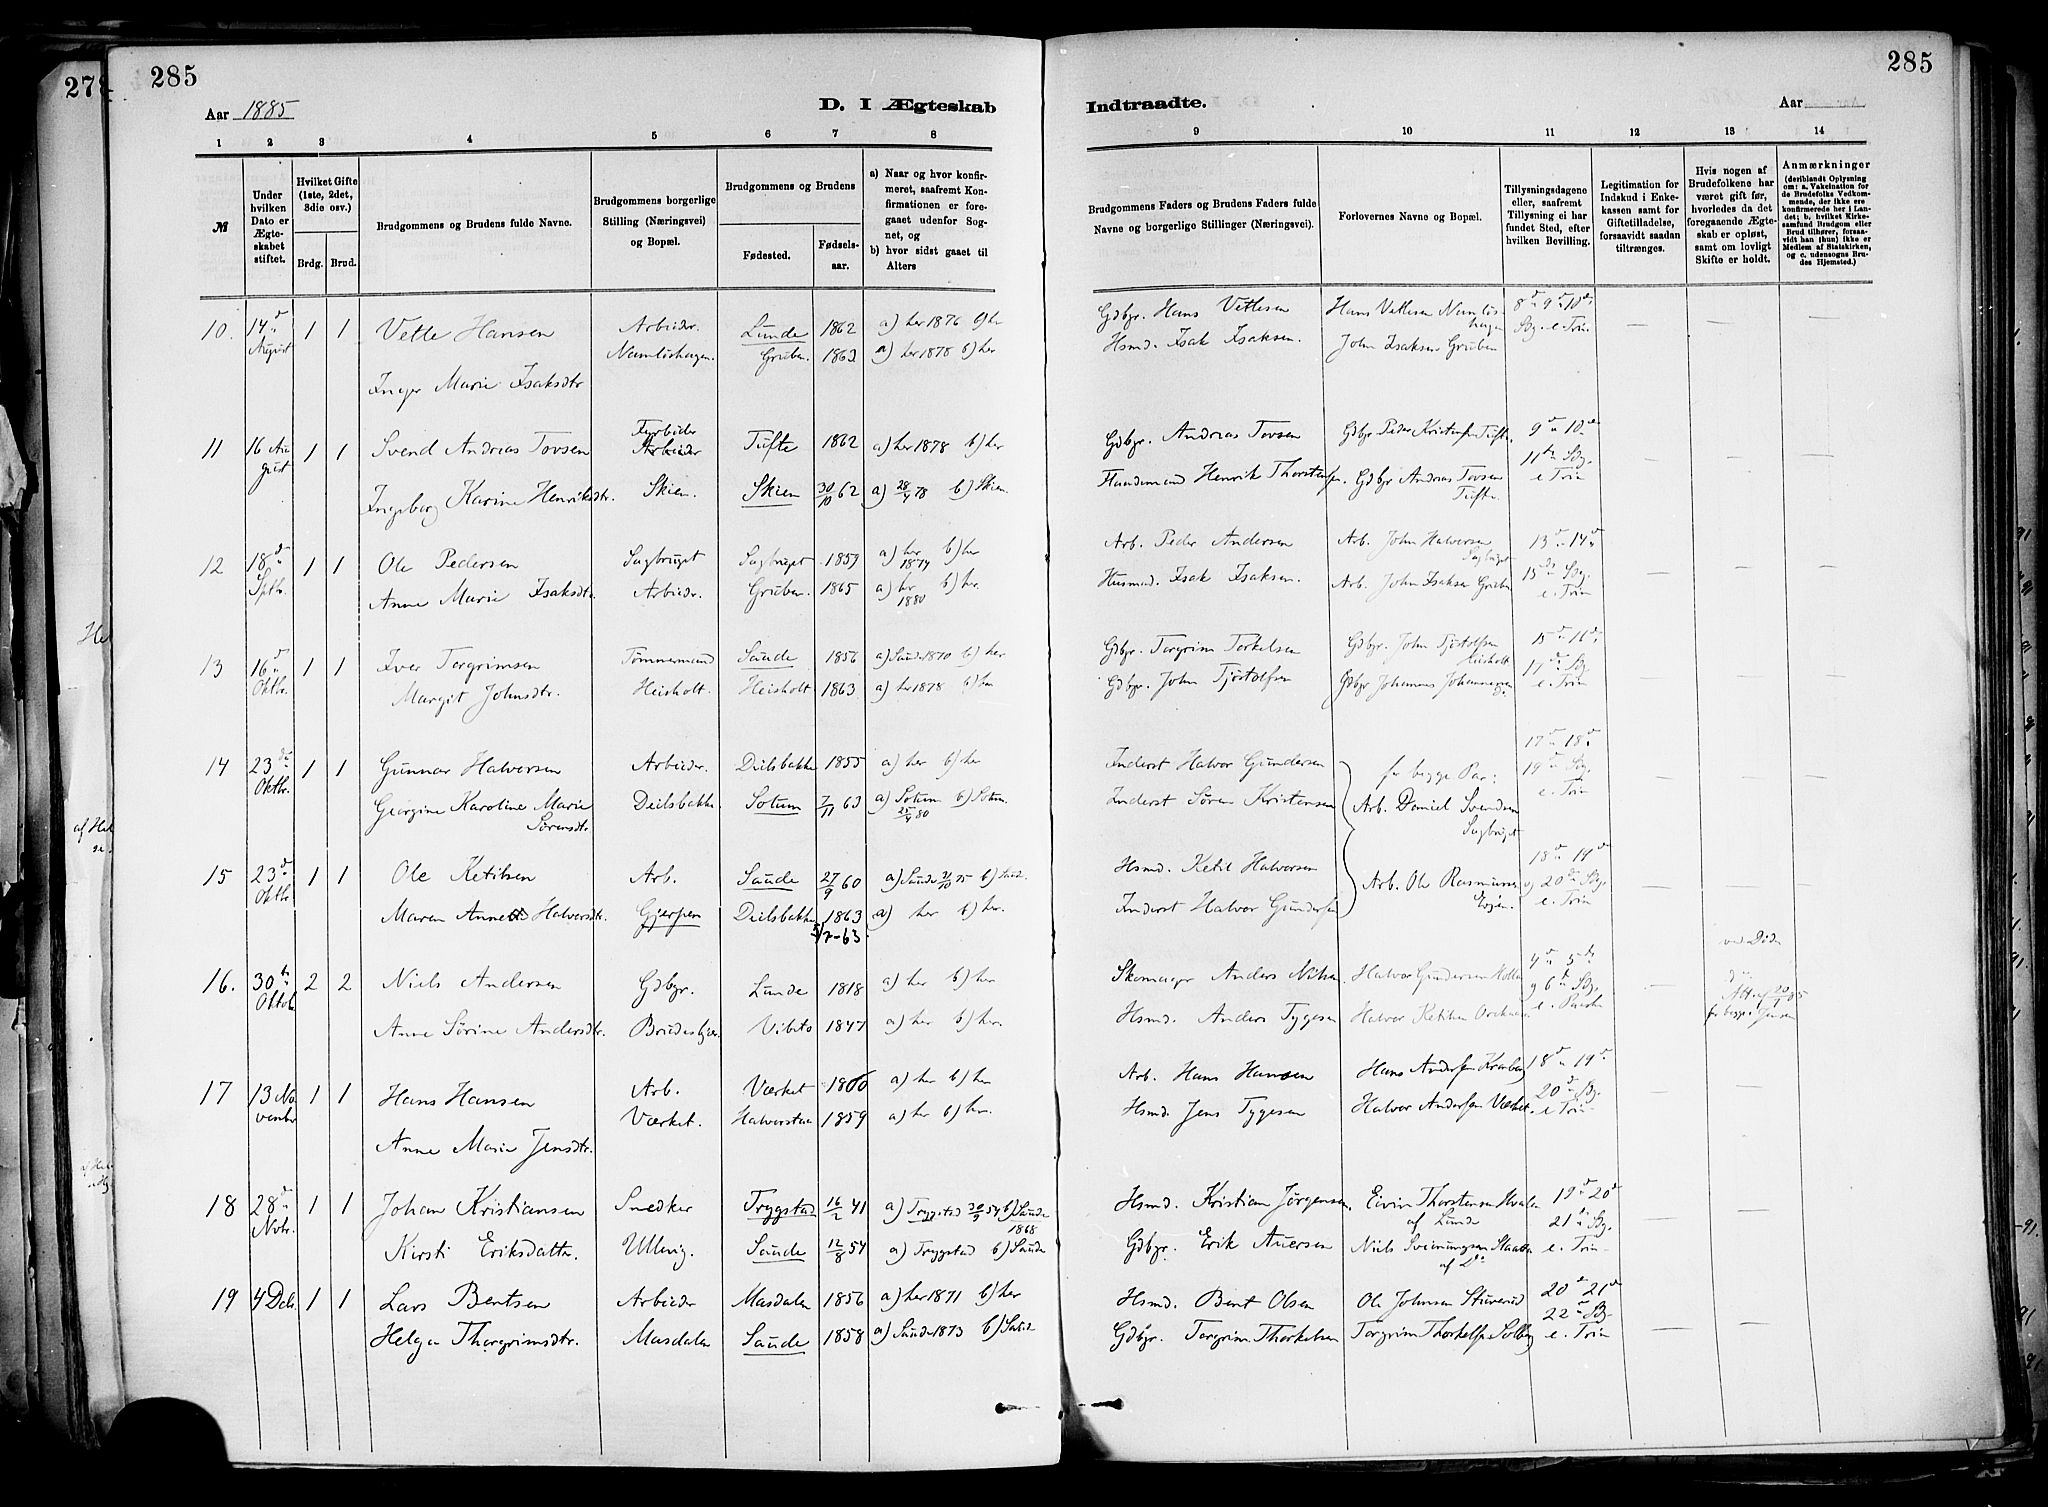 278
285
285
Aar 1885
D. I Ægteskab
Indtraadte.
Aar
1 2 3 4 5 6 7 8 9 10 11 12 13 14
№
Under hvilken Dato er Ægteskabet stiftet.
Hvilket Gifte (1ste, 2det, 3die osv.)
Brdg. Brud.
Brudgommens og Brudens fulde Navne.
Brudgommens borgerlige Stilling (Næringsvei) og Bopæl.
Brudgommens og Brudens
Fødested. Fødselsaar.
a) Naar og hvor konfirmeret, saafremt Konfirmationen er foregaaet udenfor Sognet, og
b) hvor sidst gaaet til Alters
Brudgommens Faders og Brudens Faders fulde Navne og borgerlige Stillinger (Næringsvei).
Forlovernes Navne og Bopæl.
Tillysningsdagene eller, saafremt Tillysning ei har fundet Sted, efter hvilken Bevilling.
Legitimation for Indskud i Enkekassen samt for Giftetilladelse, forsaavidt saadan tiltrænges.
Hvis nogen af Brudefolkene har været gift før, hvorledes da det foregaaende Ægteskab er opløst, samt om lovligt Skifte er holdt.
Anmærkninger (deriblandt Oplysning om: a. Vakcination for de Brudefolks Vedkommende, der ikke ere konfirmerede her i Landet; b. hvilket Kirkesamfund Brudgom eller Brud tilhører, forsaavidt han (hun) ikke er Medlem af Statskirken, og c. udensogns Brudes Hjemsted.)
10. 14d August 1 1 Vetle Hansen Arbeider. Lunde 1862 a) her 1876 b) her Gdbgr. Hans Vetlesen Hans Vetlesen Namløshagen 8d 9d 10de
Inger Marie Isaksdtr Namløshagen. Gruben. 1863 a) her 1878 b) her Hsmd. Isak Isaksen. John Isaksen Gruben Sg. e. Trin — — —
11 16 August 1 1 Svend Andreas Tovsen Fyrbøder Arbeider Tufte 1862 a) her 1878 b) her Gdbgr. Andreas Tovsen Gdbgr Peder Kristensen Tufte 9d 10de
Ingeborg Karine Henriksdtr. Skien. Skien 30/10 62 a) 28/4 78 b) Skien Henrik Thorstensen Gdbgr Andreas Tovsen Tufte. 11te Sg. e. Trin — — —
12 18d Sptbr. 1 1 Ole Pedersen Sagbruget Sagbruget 1859 a) her 1874 b) her Arb. Peder Andersen Arb. John Halvorsen Sagbruget 13d 14d
Anne Marie Isaksdtr. Arbeider. Gruben. 1865 a) her 1880 b) her. Husmd. Isak Isaksen. Arb. John Isaksen Gruben 15de Sg. e. Trin — — —
13 16d Oktbr. 1 1 Iver Torgrimsen Tømmermand Saude 1856 a) Saude 1870 b) her Gdbgr. Torgrim Torkelsen Gdbgr. John Tjostolfsen Heisholt 15d 16d
Margit Johnsdtr. Heisholt. Heisholt 1863 a) her 1878 b) her Gdbgr. John Tjostolfsen Gdbgr Johannes Johannessen 17d Sg. e. Trin — — —
14 23de Oktbr. 1 1 Gunnar Halvorsen Arbeider. Deilsbakke 1855 a) her b) her Inderst Halvor Gundersen for begge Par: 17d 18d
Georgine Karoline Marie Sørensdtr. Deilsbakke Sotum 7/11 63 a) Sotum 25/4 80 b) Sotum. Inderst Søren Kristensen Arb. Daniel Svendsen Sagbruget 19d Sg. e. Trin — — —
15 23d Oktbr. 1 1 Ole Ketilsen Arb. Saude 27/9 60 a) Saude 75 b) Saude Hsmd. Ketil Halvorsen 18d 19d
Maren Anne Halvorsdtr. Gjerpen Deilsbakke 1863 5/7-63. a) her b) her. Inderst Halvor Gundersen Arb. Ole Rasmussen og 20de Sg. e. Trin — — —
16. 30te Oktob 2 2 Niels Andersen Gdbgr. Lunde 1818 a) her b) her Skomager Anders Nilsen Halvor Gundersen 4d 5te ved Døden
Anne Sørine Andersdtr. Vibito 1847 a) her b) her. Hsmd. Anders Tygesen Halvor Ketilsen og 6te Sg. e. Paaske — Att. af for begge
17 13 November 1 1 Hans Hansen Arb. Værket 1860 a) her b) her Arb. Hans Hansen Hans Andersen 18d 19d
Anne Marie Jensdtr. Værket. Halvorstaa 1859 a) her b) her. Hsmd. Jens Tygesen Halvor Andersen Værket. 20d Sg. e. Trin — — —
18 28d Novbr. 1 1 Johan Kristiansen Snedker Trygstad 16/2 41 a) Trygstad 30/9 54 b) Saude 1868 Hsmd. Kristian Jørgensen. Eivin Thorstensen af Lunde 19d 20d
Kirsti Eriksdatter. Ullevig. Saude 12/8 54 a) Trygstad b) Saude Gdbgr. Erik Auersen Niels Sveinungsen af Do 21de Sg. e. Trin
19 4 Decb. 1 1 Lars Bentsen Arbeider Masdalen 1856 a) her 1871 b) her Hsmd. Bent Olsen Ole Johnsen Stuverud 20d 21d
Helga Thorgrimsdtr. Masdalen Saude 1858 a) Saude 1873 b) Saude Gdbgr. Torgrim Thorkelsen Torgrim Thorkelsen Solberg 22d Sg. e. Trin — — —